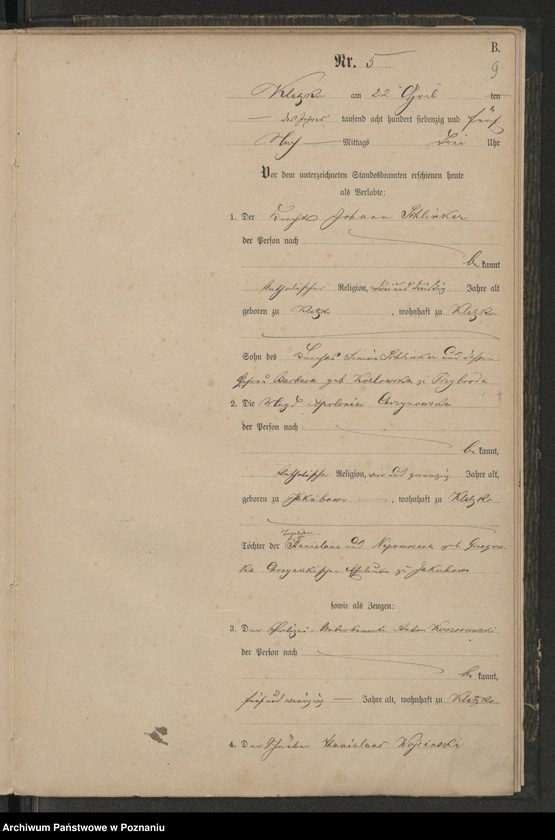 B.
9
Nr. 5
Kletzko am 22 April ten
des Jahres tausend acht hundert siebenzig und fünf
Nach Mittags drei Uhr
Vor dem unterzeichneten Standesbeamten erschienen heute
als Verlobte:
1. Der Knecht Johann Schlinker
der Person nach
be kannt
katholischer Religion, drei und dreißig Jahre alt
geboren zu Kletzko, wohnhaft zu Kletzko
Sohn des Knechts Simon Schlinker und dessen
Ehefrau Barbara geb Kozlowska zu
2. Die Magd Apolonia
der Person nach
be kannt,
katholische Religion, und zwanzig Jahre alt,
geboren zu Jakubowo, wohnhaft zu Kletzko
Tochter der
Stanislaus und Nepomucena geb
zu Jakubowo
sowie als Zeugen:
3. Der Polizei- Anton
der Person nach
be kannt,
fünf und vierzig Jahre alt, wohnhaft zu Kletzko
4. Der Schreiber Stanislaus Wojcinski
Archiwum Państwowe w Poznaniu